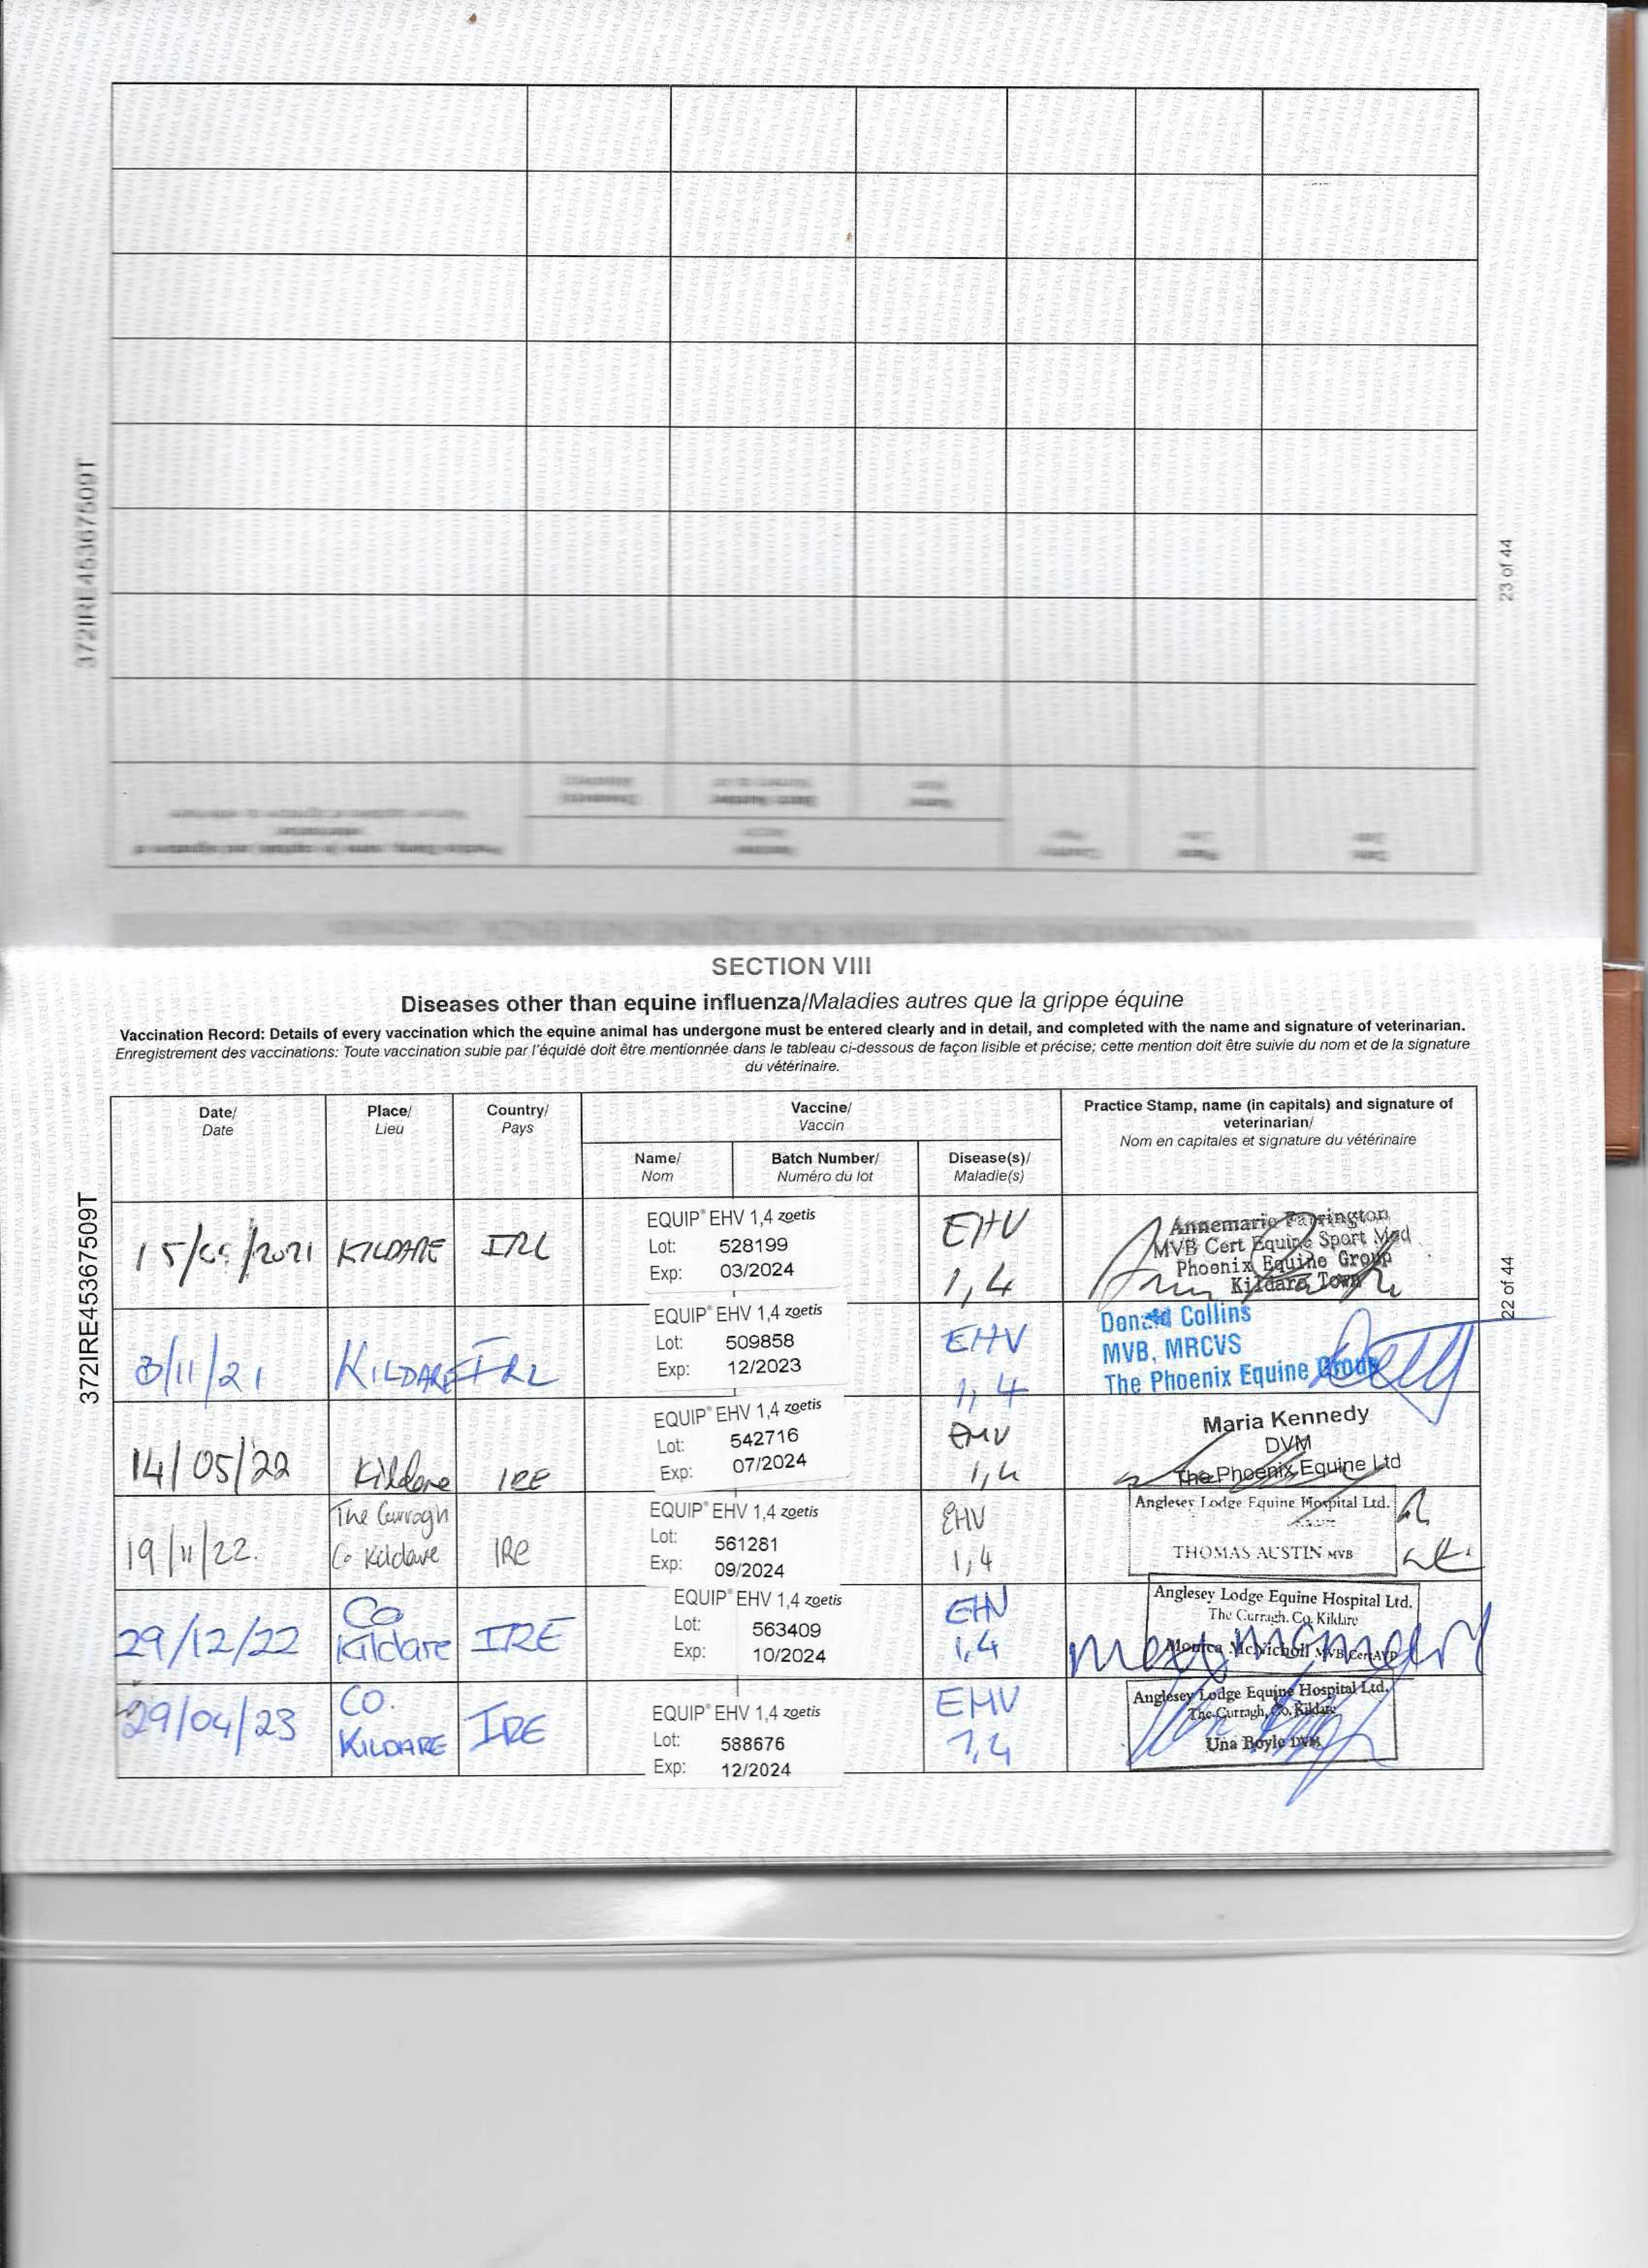 372IRE45367509T
23 of 44
SECTION VIII
Diseases other than equine influenza/Maladies autres que la grippe équine
Vaccination Record: Details of every vaccination which the equine animal has undergone must be entered clearly and in detail, and completed with the name and signature of veterinarian.
Enregistrement des vaccinations: Toute vaccination subie par l'équidé doit être mentionnée dans le tableau ci-dessous de façon lisible et précise; cette mention doit être suivie du nom et de la signature
du vétérinaire.
Date/
Date
Place/
Lieu
Country/
Pays
Vaccine/
Vaccin
Name/
Nom
Batch Number/
Numéro du lot
Disease(s)/
Maladie(s)
Practice Stamp, name (in capitals) and signature of
veterinarian/
Nom en capitales et signature du vétérinaire
372IRE45367509T
22 of 44
15/ /2021 KILDARE IRL
EQUIP® EHV 1,4 zoetis
Lot: 528199
Exp: 03/2024
EHV
1,4
Annemarie Farrington
MVB Cert Equine Sport Med
Phoenix Equine Group
Kildare Town
3/11/21 KILDARE IRL
EQUIP® EHV 1,4 zoetis
Lot: 509858
Exp: 12/2023
EHV
1,4
Donald Collins
MVB, MRCVS
The Phoenix Equine Group
14/05/22 Kildare IRE
EQUIP® EHV 1,4 zoetis
Lot: 542716
Exp: 07/2024
EHV
1,4
Maria Kennedy
DVM
The Phoenix Equine Ltd
19/11/22.
The Curragh
Co Kildare
IRe
EQUIP® EHV 1,4 zoetis
Lot: 561281
Exp: 09/2024
EHV
1,4
Anglesey Lodge Equine Hospital Ltd.
THOMAS AUSTIN MVB
29/12/22
Co
Kildare
IRE
EQUIP® EHV 1,4 zoetis
Lot: 563409
Exp: 10/2024
EHV
1,4
Anglesey Lodge Equine Hospital Ltd.
The Curragh, Co. Kildare
Monica McNicholl MVB CertAVP
29/04/23
CO.
KILDARE
IRE
EQUIP® EHV 1,4 zoetis
Lot: 588676
Exp: 12/2024
EHV
1,4
Anglesey Lodge Equine Hospital Ltd.
The Curragh, Co. Kildare
Una Boyle DVM